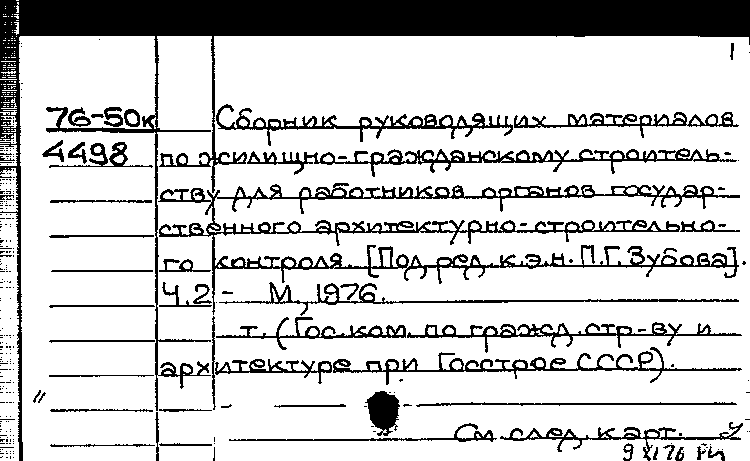 1
76-50к Сборник руководящих материалов
4498 по жилищно-гражданскому строитель-
ству для работников органов государ-
ственного архитектурно-строительно-
го контроля. [Под ред. к.э.н. П.Г. Зубова].
Ч.2 - М., 1976.
т. (Гос. ком. по гражд. стр-ву и
архитектуре при Госстрое СССР).
См. след. карт.
9 XI 76